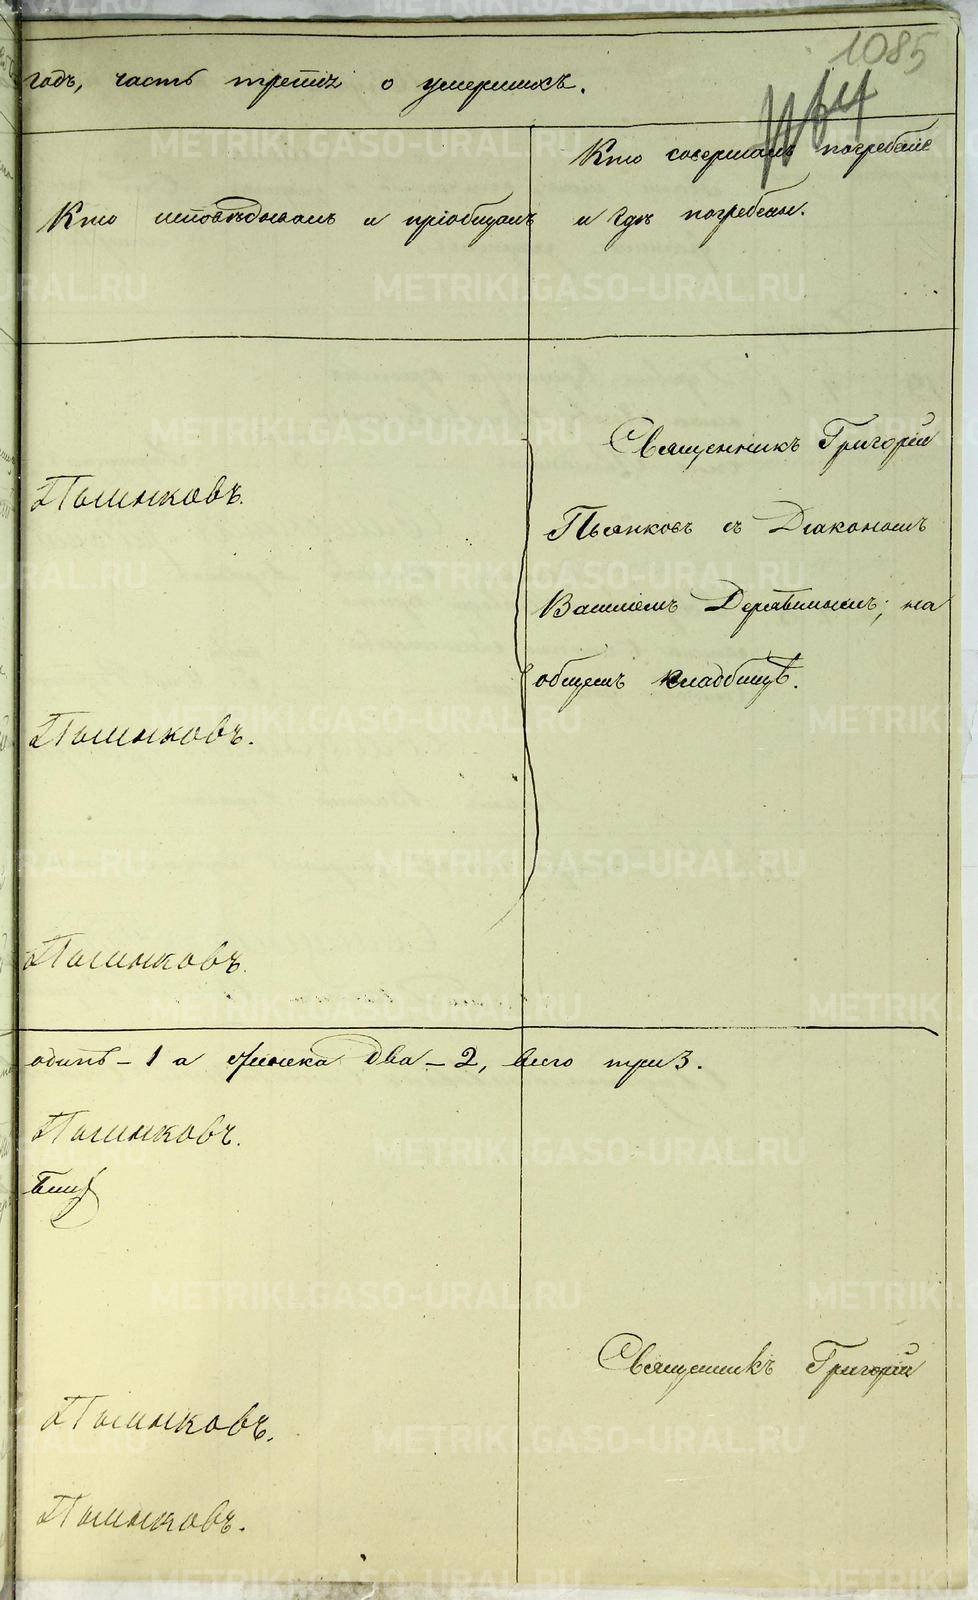 1085
годъ, часть третія о умершихъ.
Кто совершалъ погребеніе
Кто исповѣдывалъ и пріобщалъ
и гдѣ погребены.
Священникъ Григорій
Пьянковъ.
Пьянковъ съ Діакономъ
Василіемъ Державинымъ; на
общемъ кладбищѣ.
Пьянковъ.
Пьянковъ.
одинъ - 1 а женска два - 2, всего три 3.
Пьянковъ.
Священникъ Григорій
Пьянковъ.
Пьянковъ.
METRIKI.GASO-URAL.RU